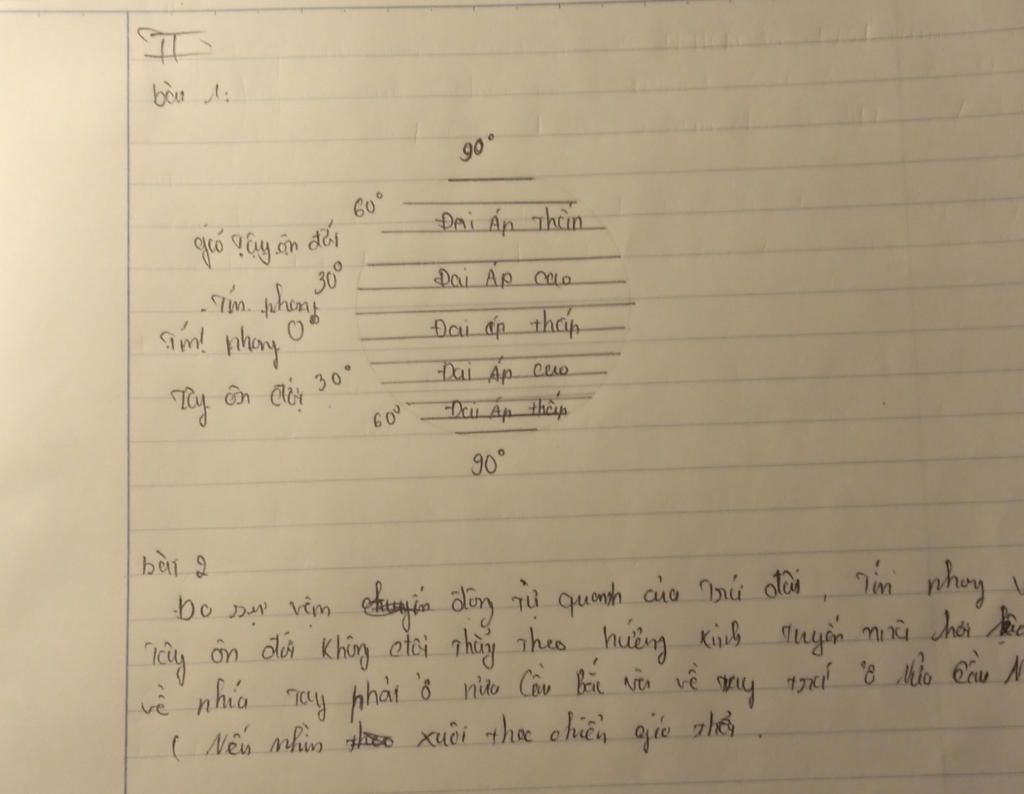 II
bài 1:
90°
60°
Đai Áp Thấp
gió Tây ôn đới
30°
Đai Áp cao
Tín phong
Tín phong 0°
Đai áp thấp
Tây ôn đới 30°
Đai Áp cao
60°
Đai Áp thấp
90°
bài 2
Do sự vận động tự quanh của Trái đất, Tín phong
Tây ôn đới không thổi thẳng theo hướng kinh tuyến mà hơi
về phía tay phải ở nửa Cầu Bắc và về tay trái ở Nửa Cầu N
( Nếu nhìn xuôi theo chiều gió thổi.